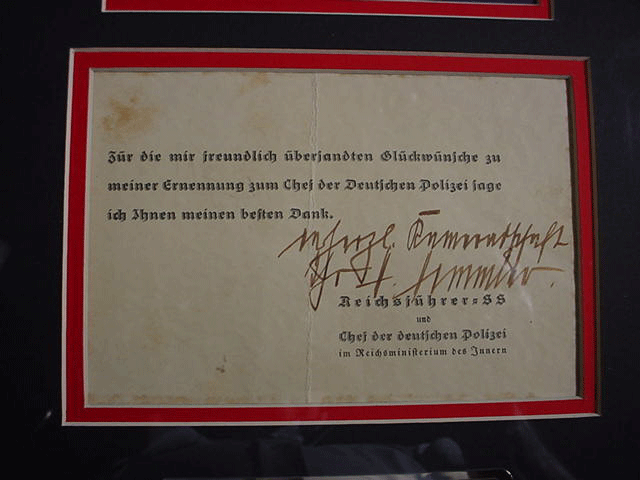 Für die mir freundlich übersandten Glückwünsche zu
meiner Ernennung zum Chef der Deutschen Polizei sage
ich Ihnen meinen besten Dank.
in herzl. Kameradschaft
Ihr H. Himmler.
Reichsführer=SS
und
Chef der deutschen Polizei
im Reichsministerium des Innern